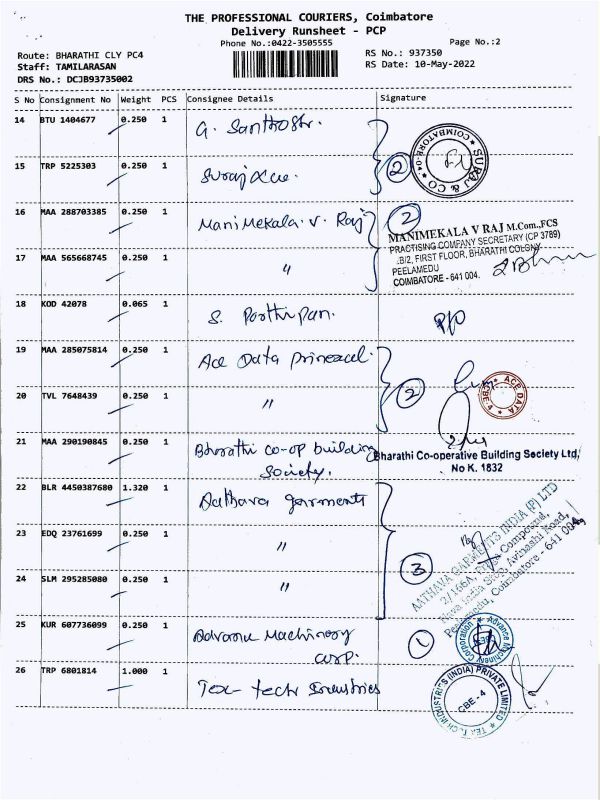 THE PROFESSIONAL COURIERS, Coimbatore
Delivery Runsheet - PCP
Phone No.:0422-3505555
Page No.:2
Route: BHARATHI CLY PC4
RS No.: 937350
Staff: TAMILARASAN
RS Date: 10-May-2022
DRS No.: DCJB93735002
S No Consignment No Weight PCS Consignee Details Signature
14 BTU 1404677 0.250 1 G. Santhosh.
15 TRP 5225303 0.250 1 Suraj & co.
2
SURAJ & CO ★ COIMBATORE-04 ★
16 MAA 288703385 0.250 1 Manimekala. V. Raj
2
MANIMEKALA V RAJ M.Com.,FCS
PRACTISING COMPANY SECRETARY (CP 3789)
B/2, FIRST FLOOR, BHARATHI COLONY
PEELAMEDU
COIMBATORE - 641 004.
17 MAA 565668745 0.250 1 "
18 KOD 42078 0.065 1 S. Parthipan.
19 MAA 285075814 0.250 1 Ace Data
2
ACE DATA ★ CBE-4 ★
20 TVL 7648439 0.250 1 "
21 MAA 290190845 0.250 1 Bharathi co-op building
society.
Bharathi Co-operative Building Society Ltd,
No K. 1832
22 BLR 4450387680 1.320 1 Aathava garments
23 EDQ 23761699 0.250 1 "
24 SLM 295285080 0.250 1 "
3
AATHAVA GARMENTS INDIA (P) LTD
Compound,
Avinashi Road,
Peelamedu, Coimbatore - 641 004.
25 KUR 607736099 0.250 1 Advance Machinery
corp.
1
Advance Machinery Corporation ★
26 TRP 6801814 1.000 1 Tex-tech Industries
TEX TECH INDUSTRIES (INDIA) PRIVATE LIMITED ★
CBE - 4